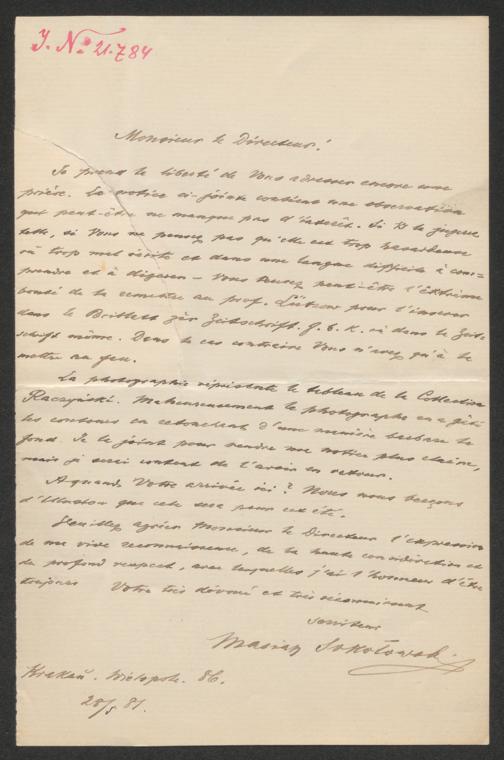 J. No 21.784
Monsieur le Directeur!
Je prend la liberté de Vous adresser encore une
prière. La notice ci-jointe contient une observation
qui peut-être ne manque pas d'intérêt. Si V. la jugera
telle, si Vous ne pensez pas qu'elle est trop
où trop mal écrite et dans une langue difficile à com=
prendre et à digerer – Vous aurez peut-être l'extrême
bonté de la remettre au prof. Lützow pour l'inserer
dans le Beiblatt zür Zeitschrift. f. b. K. ou dans le Zeit-
schrift même. Dans le cas contraire Vous n'avez qu'à la
mettre au feu.
La photographie répresente le tableau de la Collection
Raczyński. Maheureusement le photographe en a gâté
les contours en retouchant d'une manière barbare le
fond. Je la joint pour rendre ma notice plus claire,
mais je serai content de l'avoir en retour.
A quand Votre arrivée ici? Nous nous berçons
d'illusion que cela sera pour cet été.
Veuillez agréer Monsieur le Directeur l'expression
de ma vive reconnaissance, de la haute consideration et
du profond respect, avec lesquelles j'ai l'honneur d'être
toujours Votre très dévoué et très réconnaissant
serviteur
Maryan Sokołowski
Krakau. Wielopole. 86.
28/5 81.